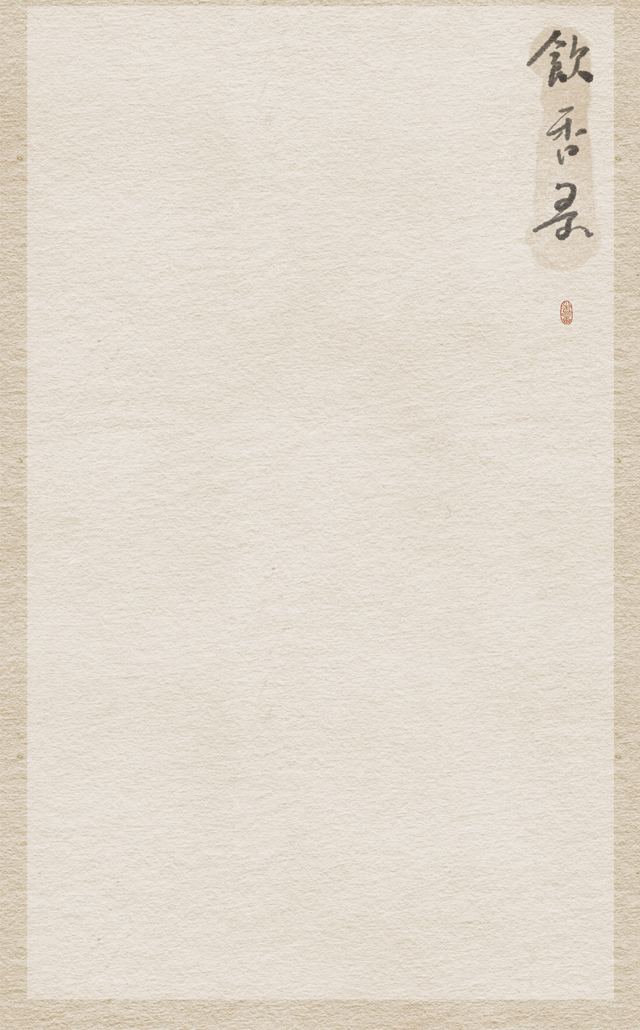 飲香录